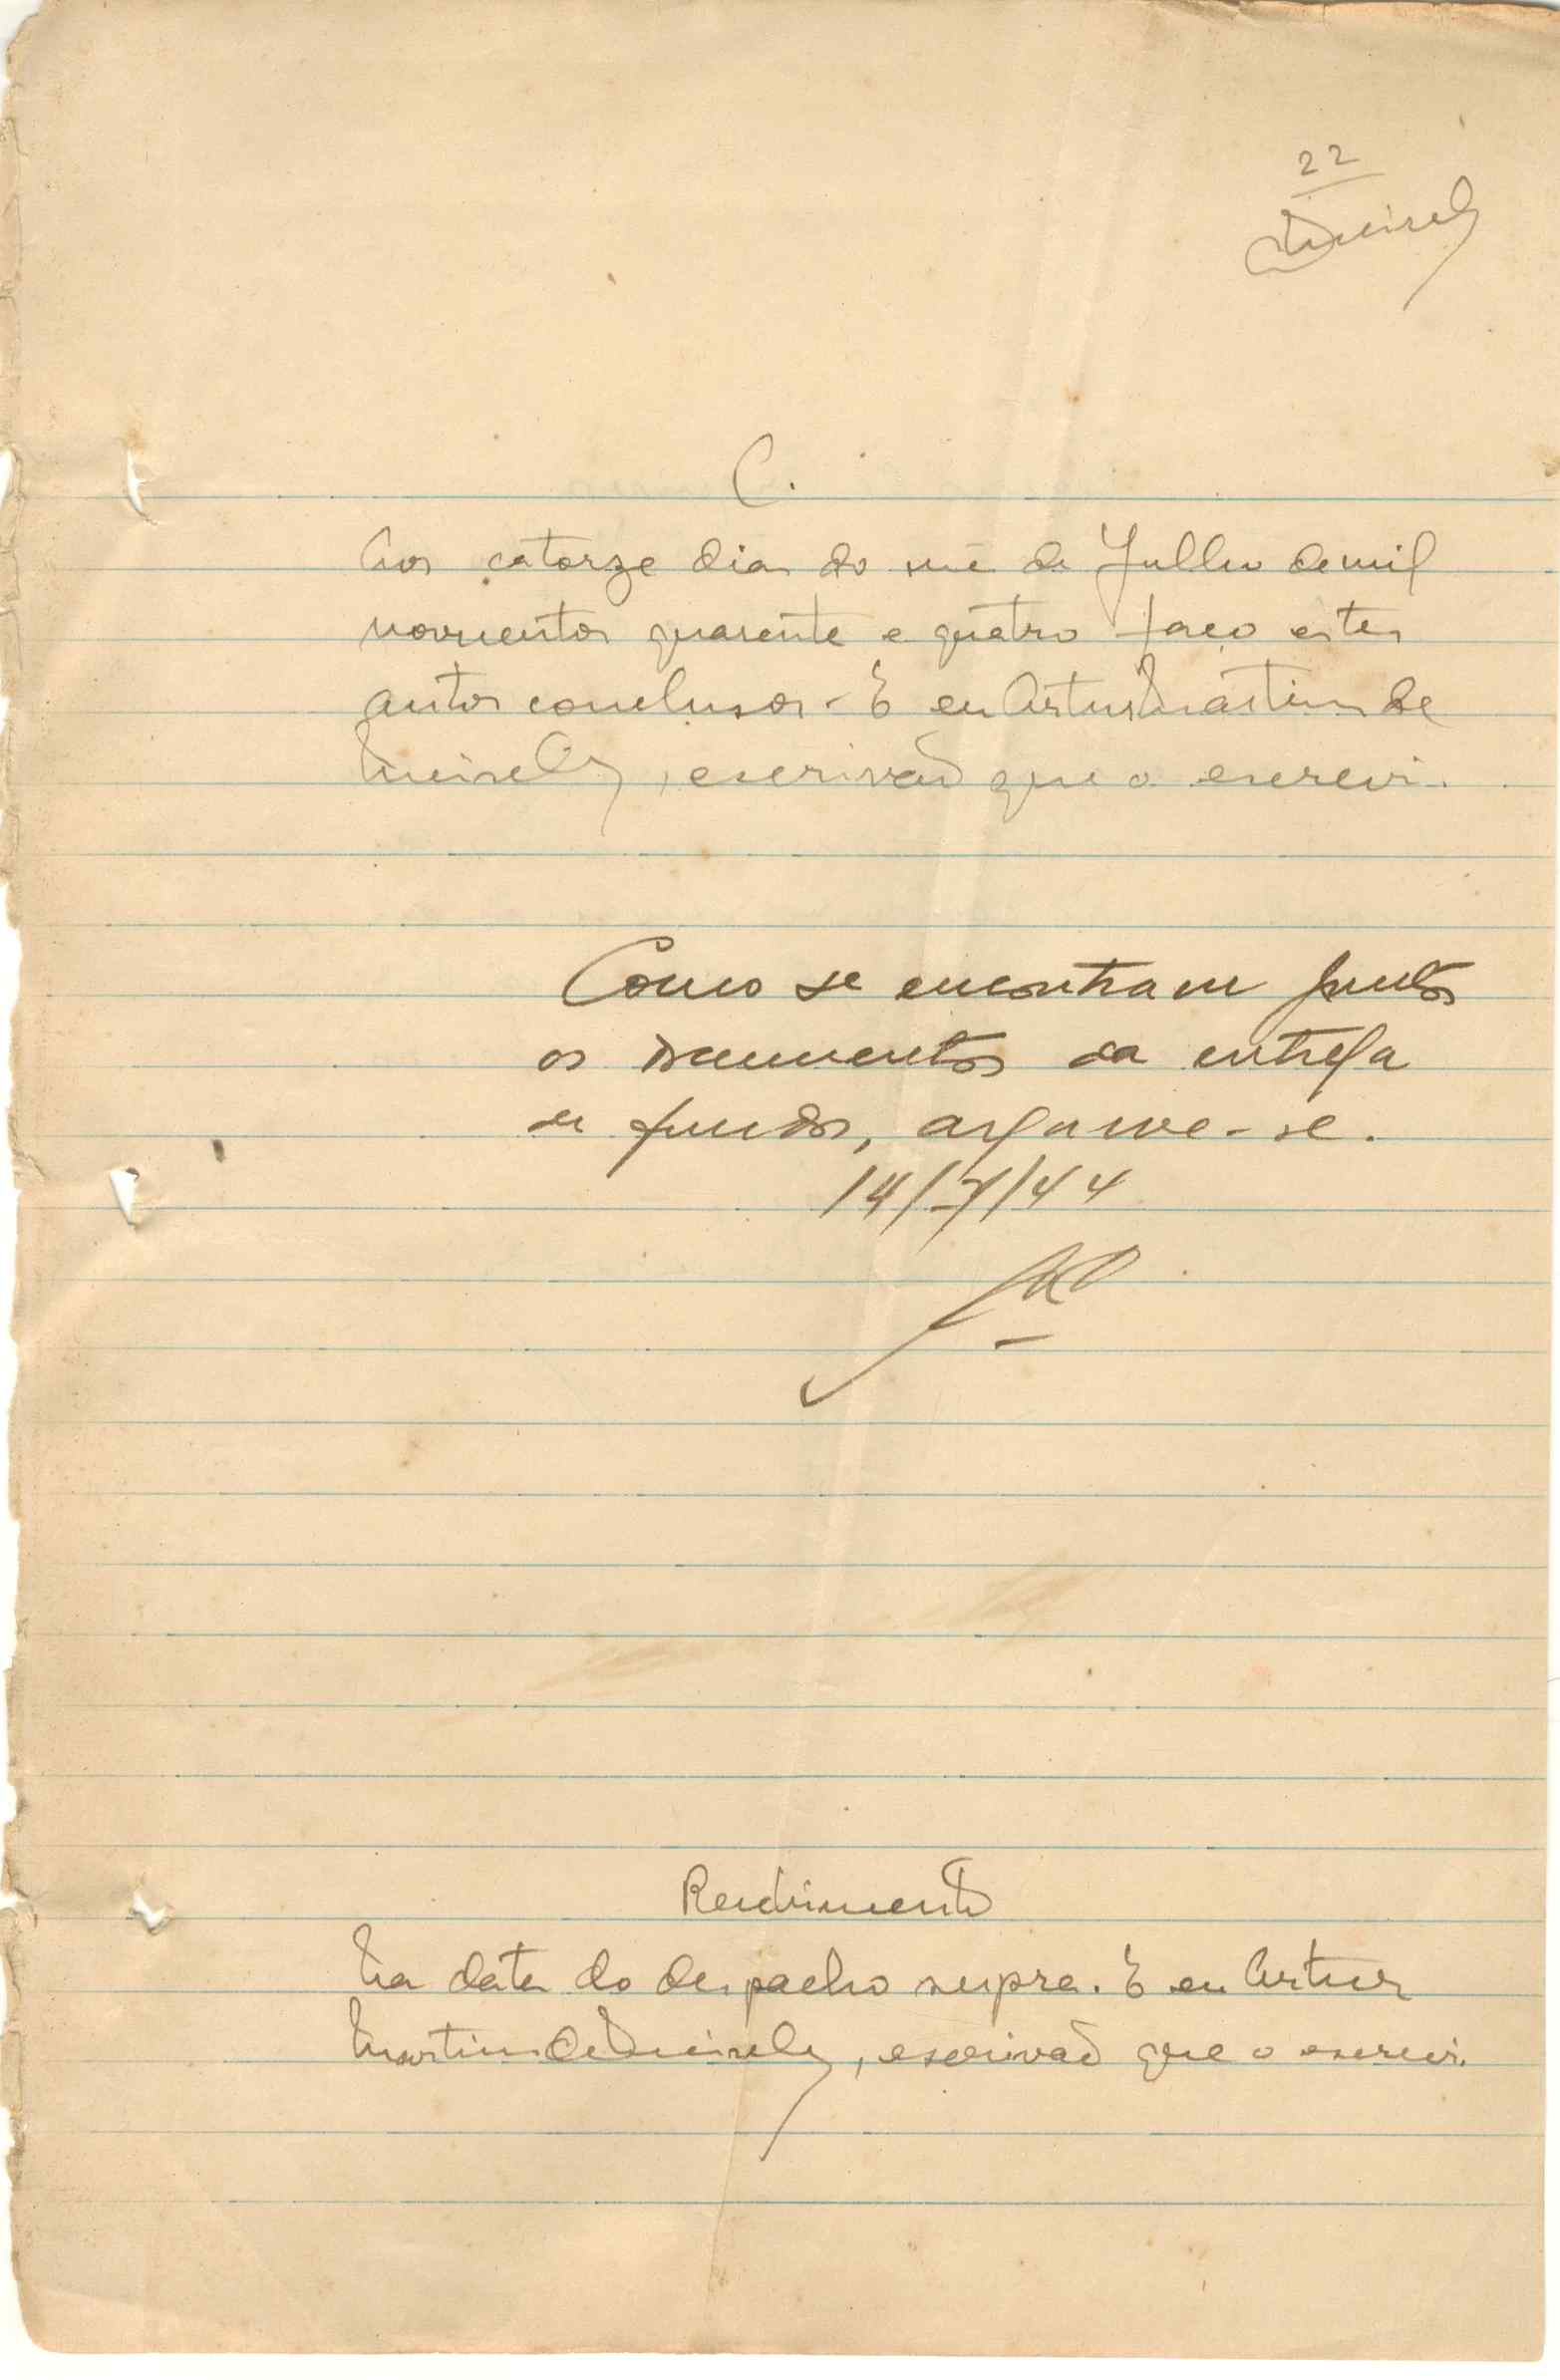 22
C.
Aos catorze dias do mês de Julho de mil
novecentos quarenta e quatro faço estes
autos conclusos - E eu Artur Martins de
Meirelles, escrivão que o escrevi.
Como se encontram juntos
os documentos da entrega
de fundos, archive-se.
14/7/44
Recebimento
Na data do despacho supra. E eu Artur
Martins de Meirelles, escrivão que o escrevi.